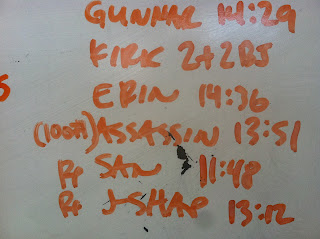 GUNNAR 14:29
KIRK 2+2BJ
ERIN 14:36
(100#) ASSASSIN 13:51
Rx SAN 11:48
Rx J-SHAP 13:12